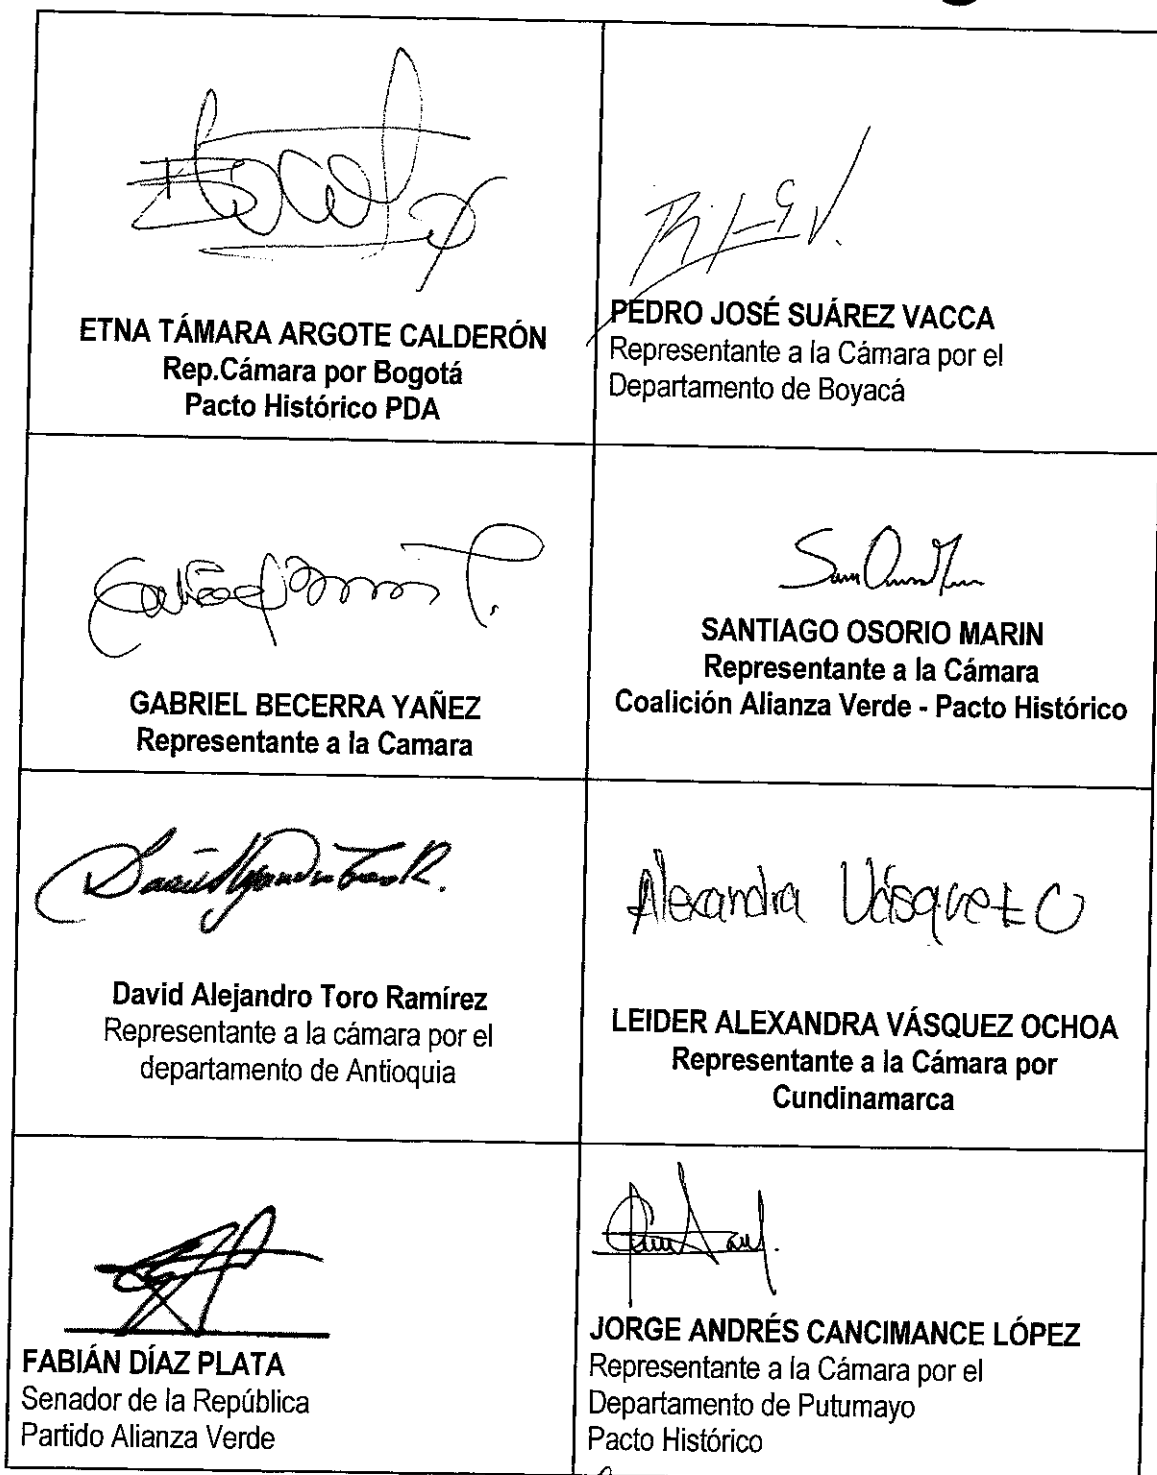 ETNA TÁMARA ARGOTE CALDERÓN
Rep.Cámara por Bogotá
Pacto Histórico PDA
PEDRO JOSÉ SUÁREZ VACCA
Representante a la Cámara por el
Departamento de Boyacá
GABRIEL BECERRA YAÑEZ
Representante a la Camara
SANTIAGO OSORIO MARIN
Representante a la Cámara
Coalición Alianza Verde - Pacto Histórico
David Alejandro Toro Ramírez
Representante a la cámara por el
departamento de Antioquia
Alexandra Vásquez O
LEIDER ALEXANDRA VÁSQUEZ OCHOA
Representante a la Cámara por
Cundinamarca
FABIÁN DÍAZ PLATA
Senador de la República
Partido Alianza Verde
JORGE ANDRÉS CANCIMANCE LÓPEZ
Representante a la Cámara por el
Departamento de Putumayo
Pacto Histórico